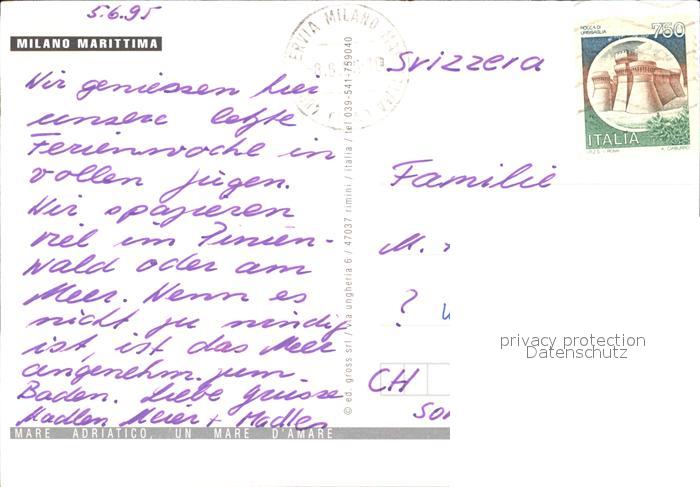 5.6.95
MILANO MARITTIMA
Wir geniessen hier
unsere letzte
Ferienwoche in
vollen Zügen.
Wir spazieren
viel im Pinien-
wald oder am
Meer. Wenn es
nicht zu windig
ist, ist das Meer
angenehm zum
Baden. Liebe Grüsse
Madlen Meier + Madlen
MARE ADRIATICO, UN MARE D'AMARE
© ed. gross srl / via ungheria 6 / 47037 rimini / italia / tel 039-541-759040
ERVIA MILANO MA
ROCCA DI
URBISAGLIA
750
ITALIA
I.P.Z.S. - ROMA
Svizzera
Familie
M.
?
CH
privacy protection
Datenschutz